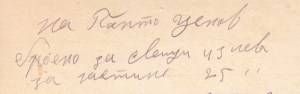 на Панто Цеков
броено за свещи 43 лева
за частине 25 ''